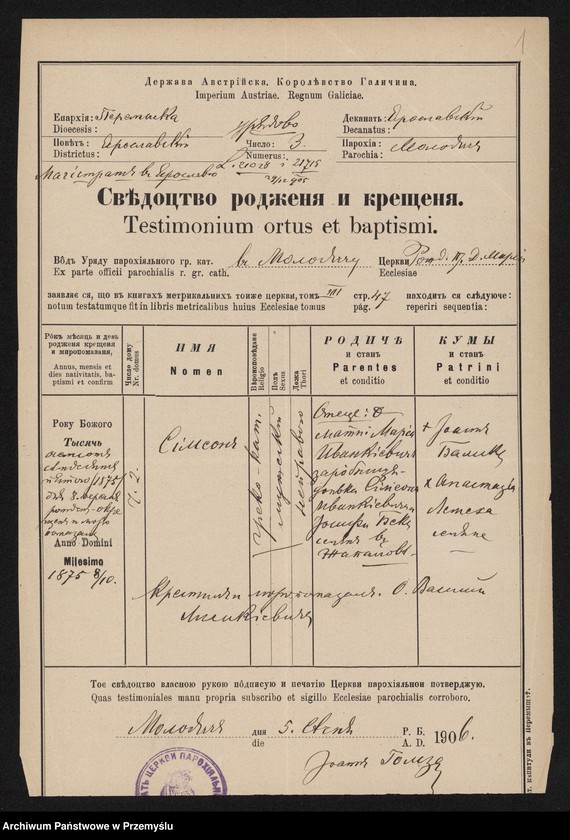 1
Держава Австрійска. Королѣвство Галичина.
Imperium Austriae. Regnum Galiciae.
Епархія: Перемыска
Dioecesis :
урядово
Деканатъ: Ярославскій
Decanatus :
Повѣтъ: Ярославскій
Districtus :
Число: 3.
Numerus:
Парохія: Молодичъ
Parochia :
Магістратъ въ Ярославѣ
Свѣдоцтво родженя и крещеня.
Testimonium ortus et baptismi.
Вôдъ Уряду парохіяльного гр. кат. въ Молодичу Церкви Рожд. П. Д. Маріи
Ex parte officii parochialis r. gr. cath. Ecclesiae
заявляе ся, що въ книгахъ метрикальнихъ тоиже церкви, томъ III стр. 47 находить ся слѣдуюче:
notum testatumque fit in libris metricalibus huius Ecclesiae tomus pág. reperiri sequentia:
Рôкъ мѣсяць и день родженя крещеня и миропомазаня,
Annus, mensis et dies nativitatis, baptismi et confirm
Число дому
Nr. domus
ИМЯ
Nomen
Вѣроисповѣдане
Religio
Полъ
Sexus
Ложа
Thori
РОДИЧѢ
и станъ
Parentes
et conditio
КУМЫ
и станъ
Patrini
et conditio
Року Божого
Тысячъ
осмсотъ
семдесятъ
пятого /1875/
дня 8.
Anno Domini
Milesimo
1875 8/10.
Ч. 2.
Сімеонъ
греко-кат.
мужескій
неправого
Отець: 0
Мати: Марія
Иванкіевичъ
донька Сімеона
Иванкіевичъ и
Іоанъ
Анастазія
селяне
Крестилъ и миропомазалъ О. Василій
Тоє свѣдоцтво власною рукою пôдписую и печатію Церкви парохіяльнои потверджую.
Quas testimoniales manu propria subscribo et sigillo Ecclesiae parochialis corroboro.
Молодичъ дня 5. Р. Б. 1906.
die A. D.
Іоанъ Голза
АТЬ ЦЕРКВИ ПАРОХІЯЛЬН
т. капитули въ Перемышлѣ.
Archiwum Państwowe w Przemyślu